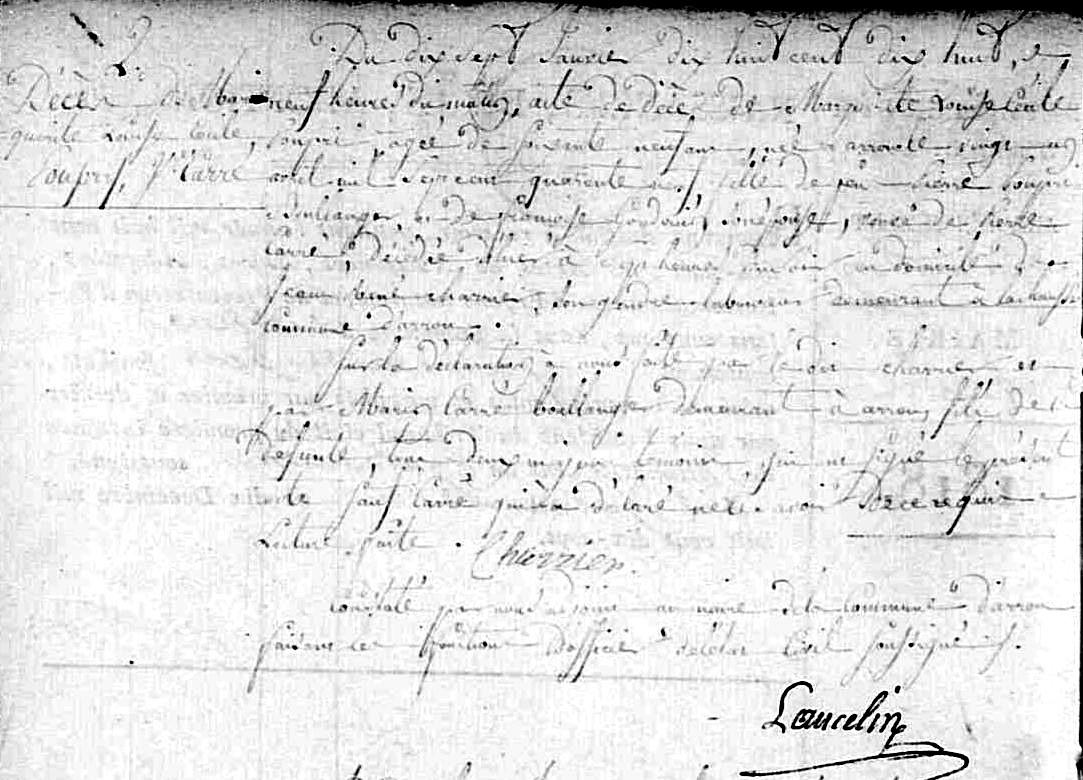 2.
Décès de Mar
guerite Louise Cécile
Soupry, Ve Carré
Du dix sept Janvier dix huit cent dix huit, à
neuf heures du matin, acte de décès de Marguerite Louise Cécile
Soupri, agée de soixante neuf ans, née à arrou le vingt
avril mil sept cent quarante neuf, fille de feu Pierre Soupri
Boulanger, et de françoise son épouse, veuve de Pierre
Carré, décédée hier à heures du soir, au domicile de
René charrier, son gendre, laboureur demeurant à la chausse
commune d'arrou.
Sur la déclaration à nous faite par le dit charrier et
par Marin Carré boulanger demeurant à arrou, fils de la
defunte, tous deux majeurs temoins, qui ont signé le présent
acte sauf Carré qui a déclaré ne le savoir de ce requis
Lecture faite. Charrier.
Constaté par nous adjoint au maire de la Commune d'arrou
faisant les fonctions d'officier de l'état Civil soussigné
Lancelin